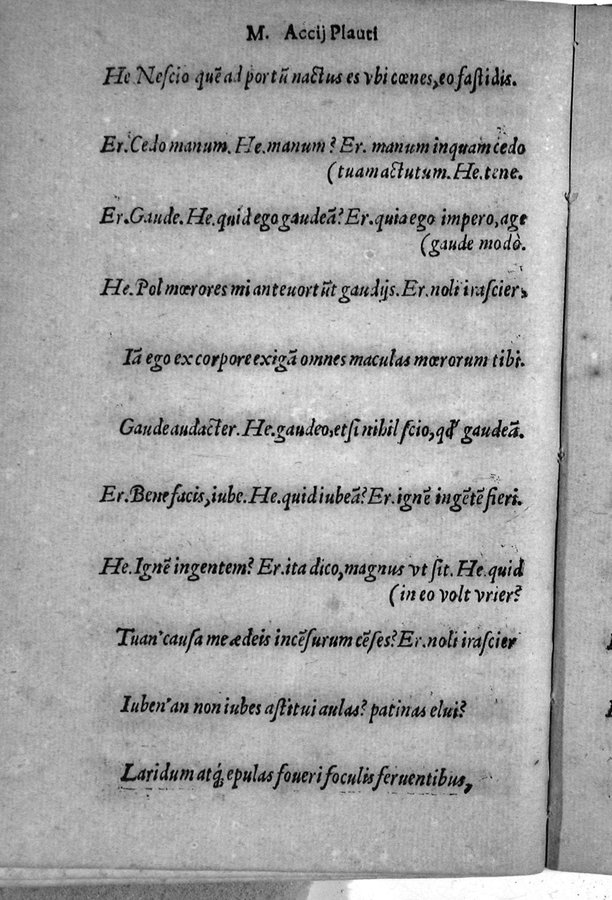 M. Accij Plauti
He. Nescio quē ad portū nactus es vbi cœnes, eo fastidis.
Er. Cedo manum. He. manum? Er. manum inquam cedo
(tuam actutum. He. tene.
Er. Gaude. He. quid ego gaudeā? Er. quia ego impero, age
(gaude modò.
He. Pol mœrores mi anteuortūt gaudijs. Er. noli irascier,
Iā ego ex corpore exigā omnes maculas mœrorum tibi.
Gaude audacter. He. gaudeo, etsi nihil scio, qđ gaudeā.
Er. Bene facis, iube. He. quid iubeā? Er. ignē ingētē fieri.
He. Ignē ingentem? Er. ita dico, magnus vt sit. He. quid
(in eo volt vrier?
Tuan' causa me ædeis incēsurum cēses? Er. noli irascier
Iuben' an non iubes astitui aulas? patinas elui?
Laridum atq; epulas foueri foculis feruentibus,